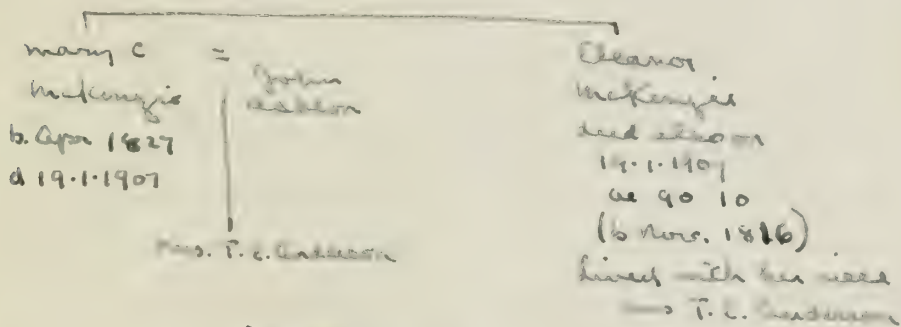 Mary C =
McKenzie
b. Apr 1827
d 19.1.1907
John
Mrs. T. C. Anderson
Eleanor
McKenzie
died also on
19.1.1907
ae 90 10
(b Nov. 1816)
Lived with her niece
Mrs T. C. Anderson